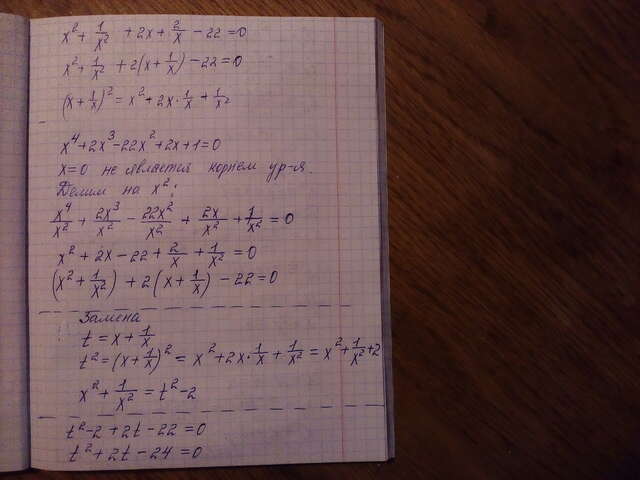 x² + 1/x² + 2x + 2/x - 22 = 0
x² + 1/x² + 2(x + 1/x) - 22 = 0
(x + 1/x)² = x² + 2x · 1/x + 1/x²
x⁴ + 2x³ - 22x² + 2x + 1 = 0
x = 0 не является корнем ур-я.
Делим на x²:
x⁴/x² + 2x³/x² - 22x²/x² + 2x/x² + 1/x² = 0
x² + 2x - 22 + 2/x + 1/x² = 0
(x² + 1/x²) + 2(x + 1/x) - 22 = 0
Замена
t = x + 1/x
t² = (x + 1/x)² = x² + 2x · 1/x + 1/x² = x² + 1/x² + 2
x² + 1/x² = t² - 2
t² - 2 + 2t - 22 = 0
t² + 2t - 24 = 0